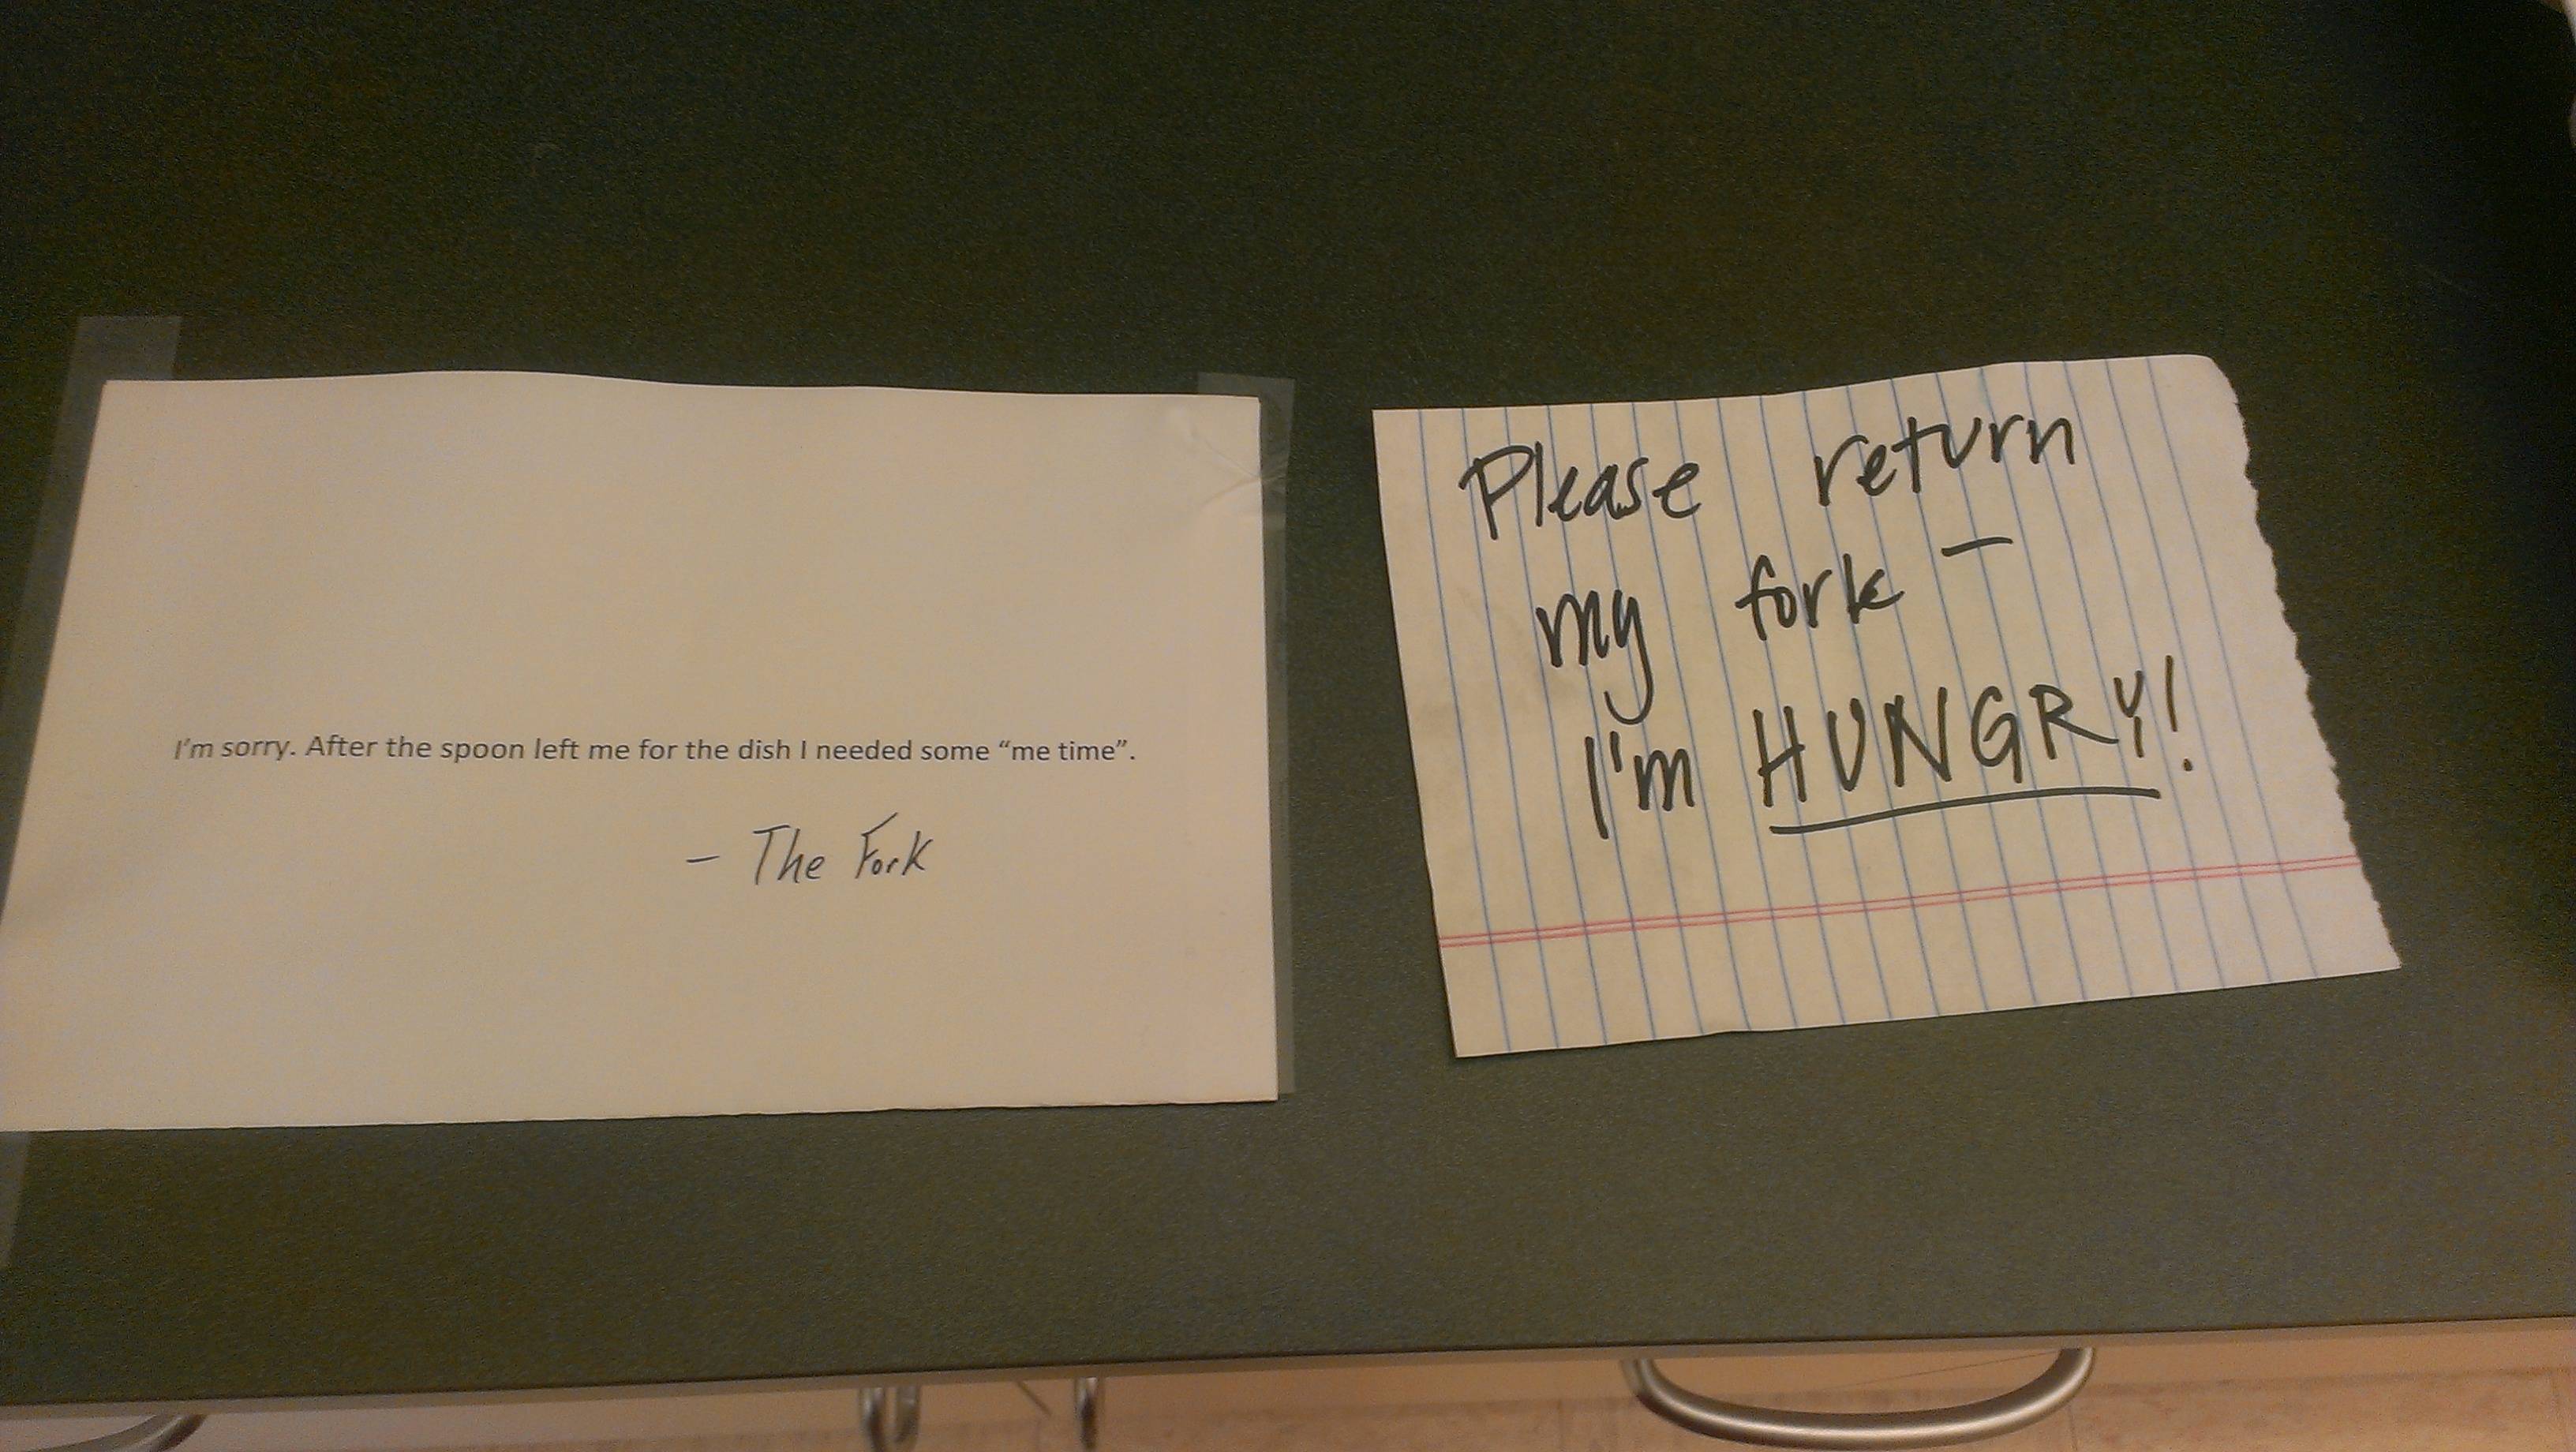 I'm sorry. After the spoon left me for the dish I needed some “me time”.
– The Fork
Please return
my fork –
I'm HUNGRY!